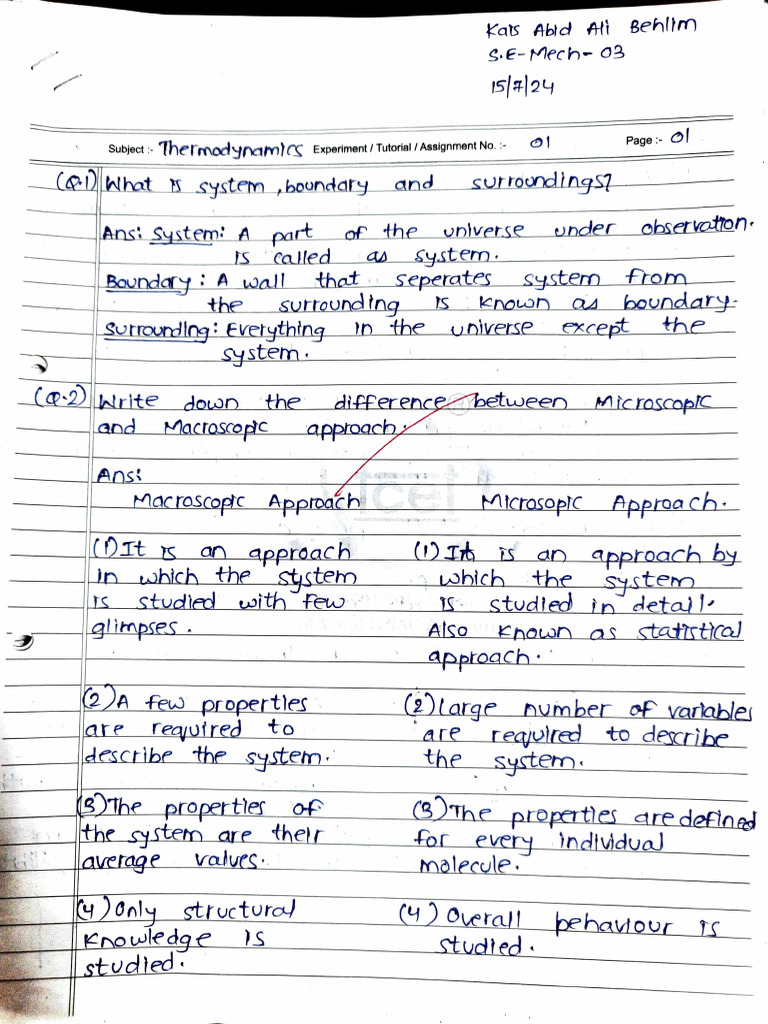 Kais Abid Ali Behlim
S.E-Mech-03
15/7/24
Subject :- Thermodynamics Experiment / Tutorial / Assignment No. :- 01 Page :- 01
(Q.1) What is system, boundary and surroundings?
Ans: System: A part of the universe under observation.
is called as system.
Boundary: A wall that seperates system from
the surrounding is known as boundary.
Surrounding: Everything in the universe except the
system.
(Q.2) Write down the difference between Microscopic
and Macroscopic approach.
Ans:
Macroscopic Approach
(1) It is an approach
in which the system
is studied with few
glimpses.
(2) A few properties
are required to
describe the system.
(3) The properties of
the system are their
average values.
(4) Only structural
knowledge is
studied.
Microsopic Approach.
(1) It is an approach by
which the system
is studied in detail.
Also known as statistical
approach.
(2) Large number of variables
are required to describe
the system.
(3) The properties are defined
for every individual
molecule.
(4) Overall behaviour is
studied.
tcet